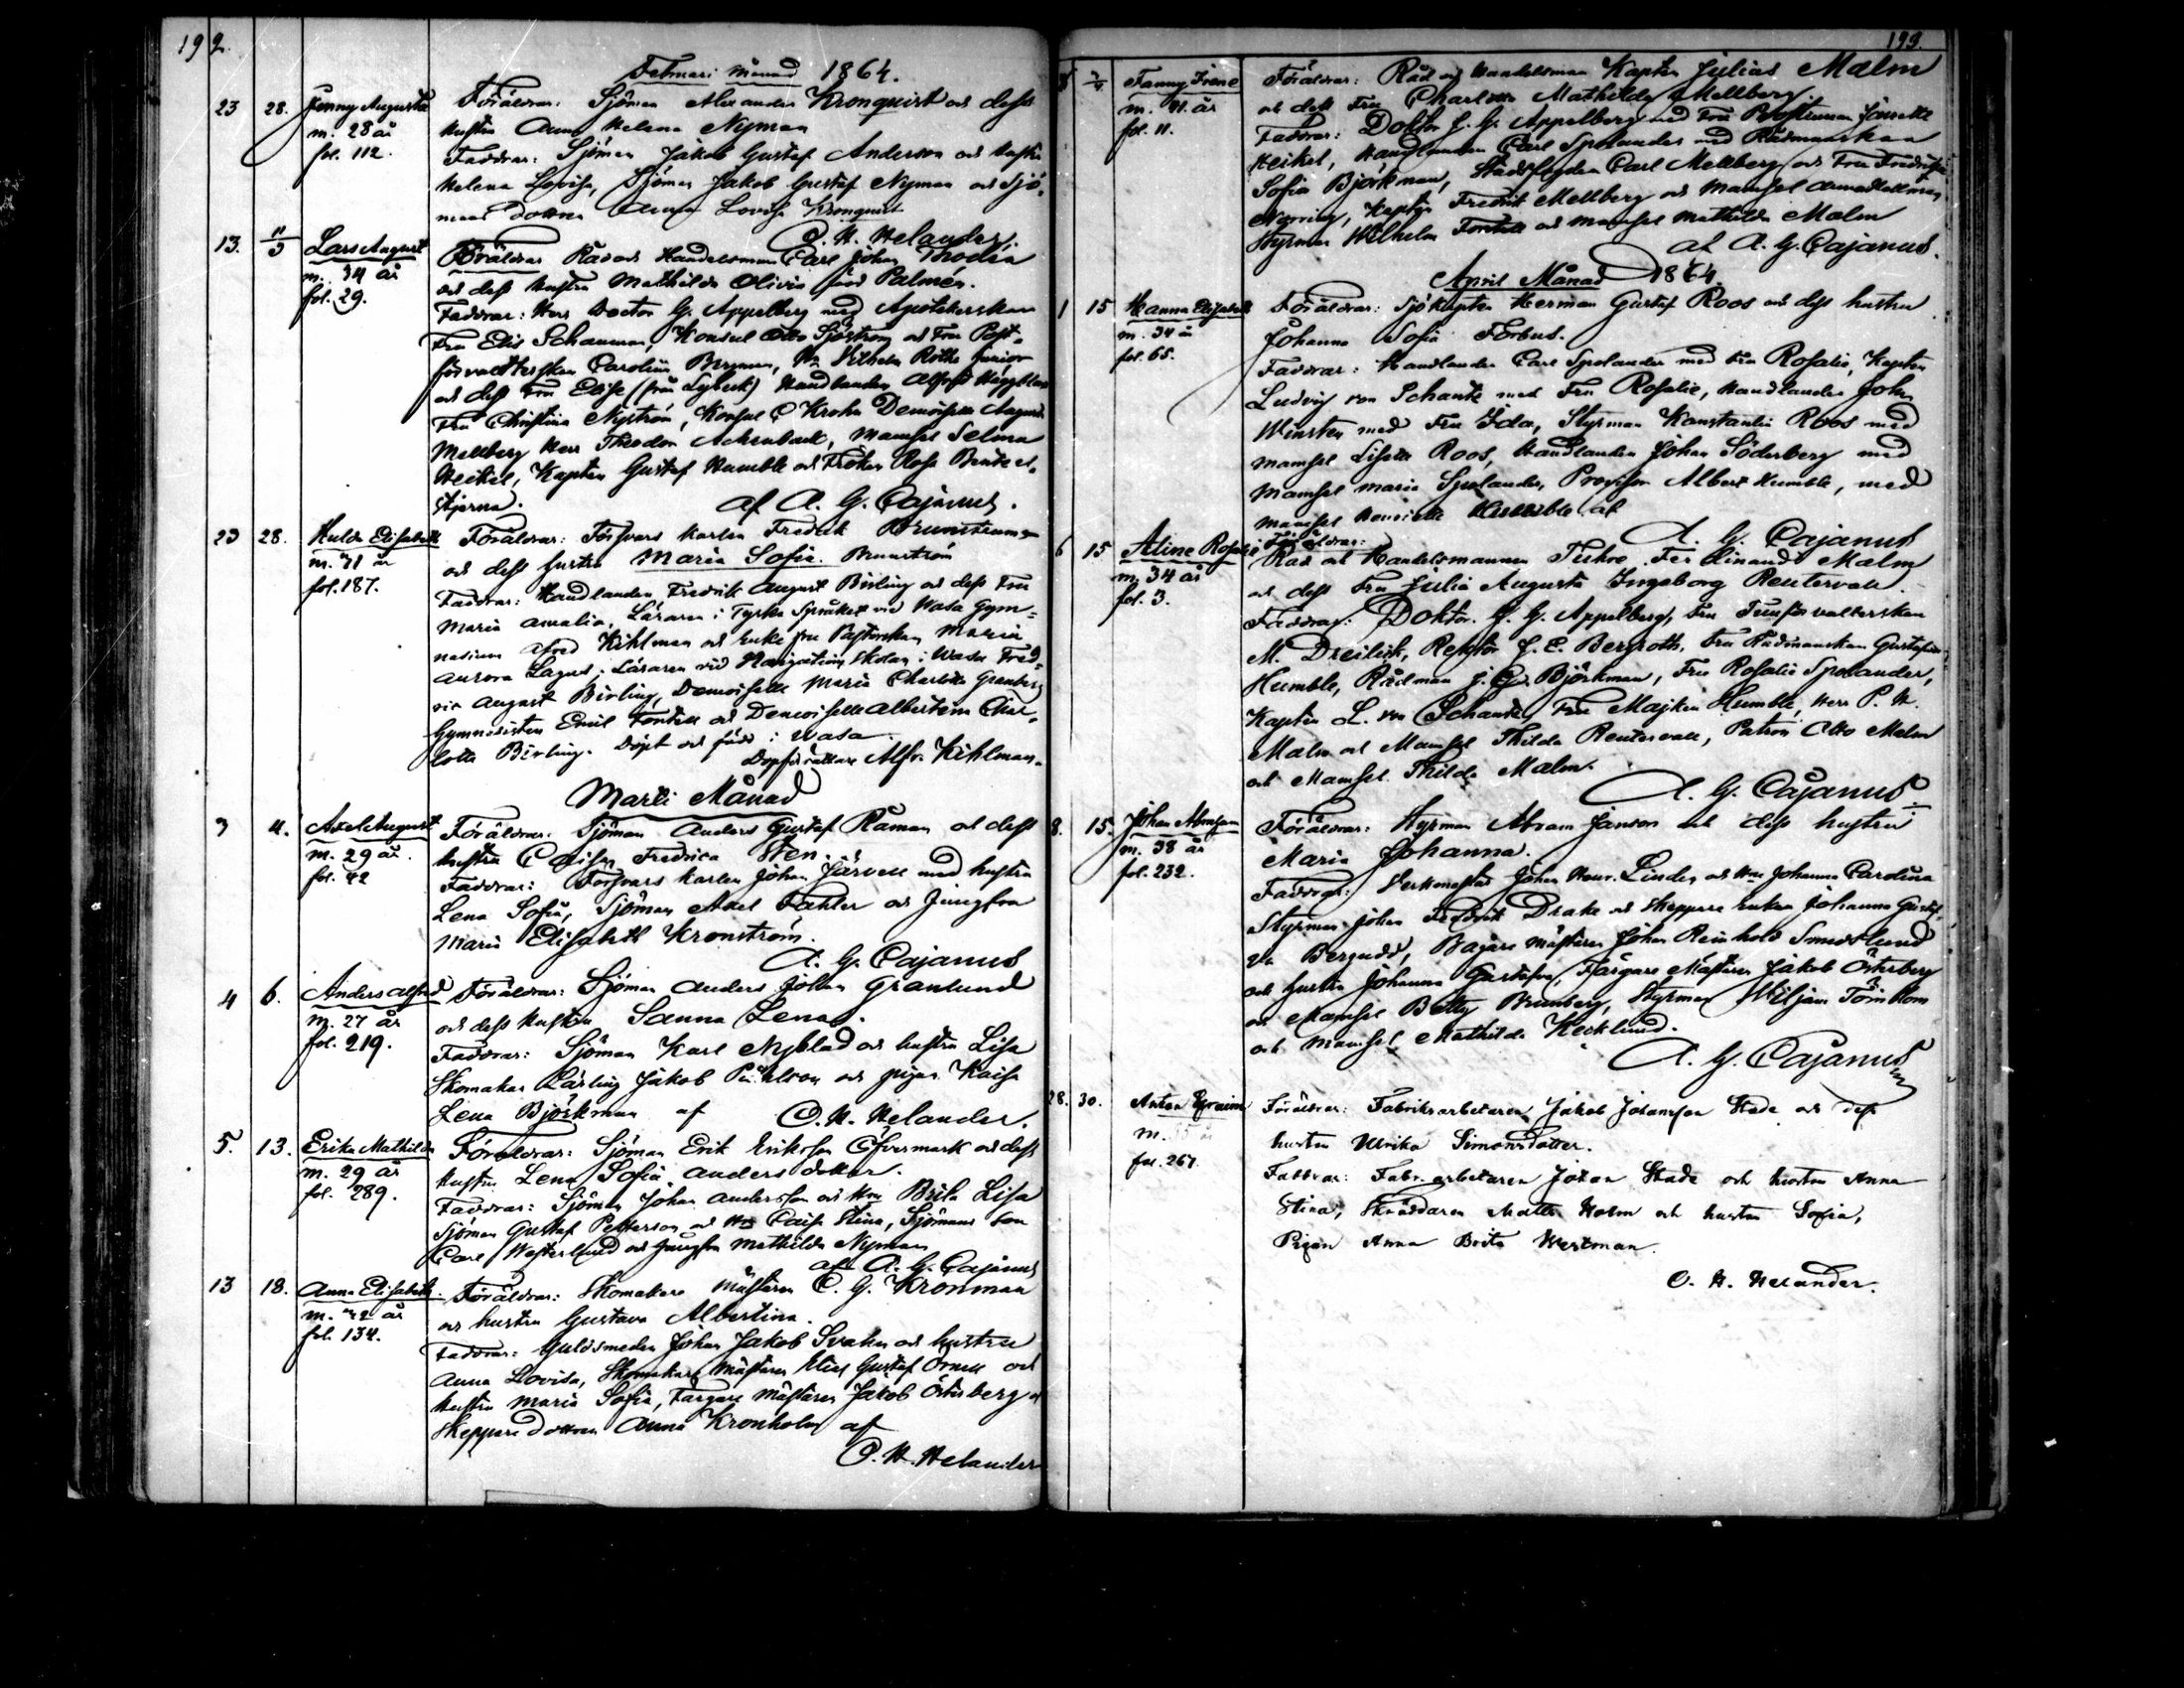 192.
Februari Månad 1864.
23 28. Jenny Augusta Föräldrar: Sjöman Alexander Kronquist och dess
m. 28 år hustru Anna Helena Nyman
fol. 112. Faddrar: Sjöman Jakob Gustaf Anderson och hustru
Helena Lovisa, Sjöman Jakob Gustaf Nyman och Sjö-
mans dottren Anna Lovisa Kronquist
O. H. Helander.
13. 11/3 Lars August Föräldrar Råd och Handelsman Carl Johan
m. 34 år och dess hustru Mathilda Olivia född Palmén.
fol. 29. Faddrar: Herr Doctor G. Appelberg med Apothekerskan
Fru Elis Schauman, Konsul Otto Sjöström och Fru Post-
förvaltterskan Carolina Bergman, Hr Vilhelm Rothe Junior
och dess Fru Elise (från Lybeck) Handlanden Alfred Häggblom
Fru Christina Nyström, Konsul C Krohn Demoiselle Augusta
Mellberg Herr Theodor Achenback, Mamsel Selma
Heikel, Kapten Gustaf Humble och Fröken Rosa
stjerna. af A. G. Cajanus.
23 28. Hulda Elisabeth Föräldrar: Forsvars karlen Fredrik Brunström
m. 41 år och dess hustru Maria Sofia Brunström
fol. 187. Faddrar: Handlanden Fredrik August Birling och dess Fru
Maria Amalia, Läraren i Tyska Språket vid Wasa Gym-
nasium Alfred Kihlman och Enke fru Pastorskan Maria
Aurora Lagus, Läraren vid Navigations skolan i Wasa Fred-
ric August Birling, Demoiselle Maria Charlotta Granberg
Gymnasisten Emil Fontell och Demoiselle Albertina Char-
lotta Birling. Döpt och född i Wasa.
Dopförrättare Alfr. Kihlman.
Marti Månad
3 4. Axel August Föräldrar: Sjöman Anders Gustaf Råman och dess
m. 29 år. hustru Caisa Fredrica Sten.
fol. 42 Faddrar: Forsvars karlen Johan Järvell med hustru
Lena Sofia, Sjöman Axel Fahler och Jungfru
Maria Elisabeth Kronström.
A. G. Cajanus
4 6. Anders Alfred Föräldrar: Sjöman Anders Johan Granlund
m. 27 år och dess hustru Sanna Lena.
fol. 219. Faddrar: Sjöman Karl Nyblad och hustru Lisa
Skomakar Lärling Jakob och pigan Kaisa
Lena Björkman af O. H. Helander.
5. 13. Erika Mathilda Föräldrar: Sjöman Erik Eriksson Öfvermark och dess
m. 29 år hustru Lena Sofia Andersdotter.
fol. 289. Faddrar: Sjöman Johan Andersson och Hu Brita Lisa
Sjöman Gustaf Petterson och Hu Caisa Stina, Sjömans son
Carl Westerlund och Jungfru Mathilda Nyman
af A. G. Cajanus
13 18. Anna Elisabeth. Föräldrar: Skomakare Mästaren C. G. Kronman
m. 42 år och hustru Gustava Albertina.
fol. 134. Faddrar: Guldsmeden Johan Jakob Svahn och hustru
Anna Lovisa, Skomakare Mästaren Elias Gustaf Örnell och
hustru Maria Sofia, Färgare Mästaren Jakob Österberg och
Skeppare dottren Anna Kronholm af
O. H. Helander
193.
Fanny Irene Föräldrar: Råd och Handelsman Kapten Julius Malm
m. 41. år och dess Fru Charlotta Mathilda Mellberg.
fol. 11. Faddrar: Doktor G. G. Appelberg med Fru
Heikel, Handlanden Carl Spolander med Rådmanskan
Sofia Björkman, Stadsfogden Carl Mellberg och Fru Fredrika
Kapten Fredrik Mellberg och Mamsel
Styrman Wilhelm Fontell och Mamsel Mathilda Malm
af A. G. Cajanus.
April Månad 1864
1 15 Hanna Elisabeth Föräldrar: Sjökapten Herman Gustaf Roos och dess hustru
m. 34 år Johanna Sofia Forbus.
fol. 65. Faddrar: Handlanden Carl Spolander med Fru Rosalie, Kapten
Ludvig von Schantz med Fru Rosalie, Handlanden John
Winsten med Fru Ida, Styrman Konstantin Roos med
Mamsel Lisette Roos, Handlanden Johan Söderberg med
Mamsel Maria Spolander, Provisor Albert Humble, med
Mamsel Humble af
A. G. Cajanus
6 15 Aline Rosalie Föräldrar:
m. 34 år Råd och Handelsmannen Ferdinand Malm
fol. 3. och dess Fru Julia Augusta Ingeborg Reutervall.
Faddrar: Doktor G. G. Appelberg, Fru
M. Dreilick, Rektor J. E. Bergroth, Fru Rådmanskan Gustafva
Humble, Rådman J. G. Björkman, Fru Rosalie Spolander,
Kapten L. von Schantz, Fru Majken Humble, Herr P. H.
Malm och Mamsel Thilda Reutervall, Patron Otto Malm
och Mamsel Thilda Malm.
A. G. Cajanus
8. 15. Johan Abraham Föräldrar: Styrman Abram Janson och dess hustru
m. 38 år Maria Johanna.
fol. 232. Faddrar: Verkmästar Johan Henr. Linden och Hu Johanna Carolina
Styrman Johan Fredrik Drake och Skeppare Enkan Johanna Gustaf-
va Bergudd, Bagare Mästaren Johan Reinhold Smedslund
och hustru Johanna Gustafva, Färgare Mästaren Jakob Österberg
och Mamsel Betty Brunberg, Styrman Wiljam Törnblom
och Mamsel Mathilda Hecklund.
A. G. Cajanus
28. 30. Anton Efraim Föräldrar: Fabriksarbetaren Jakob Johansson Stade och dess
m. hustru Ulrika Simonsdotter.
fol. 267. Faddrar: Fabr. arbetaren Johan Stade och hustru Anna
Stina, Skräddaren Matts Holm och hustru Sofia,
Pigan Anna Brita Westman.
O. H. Helander.